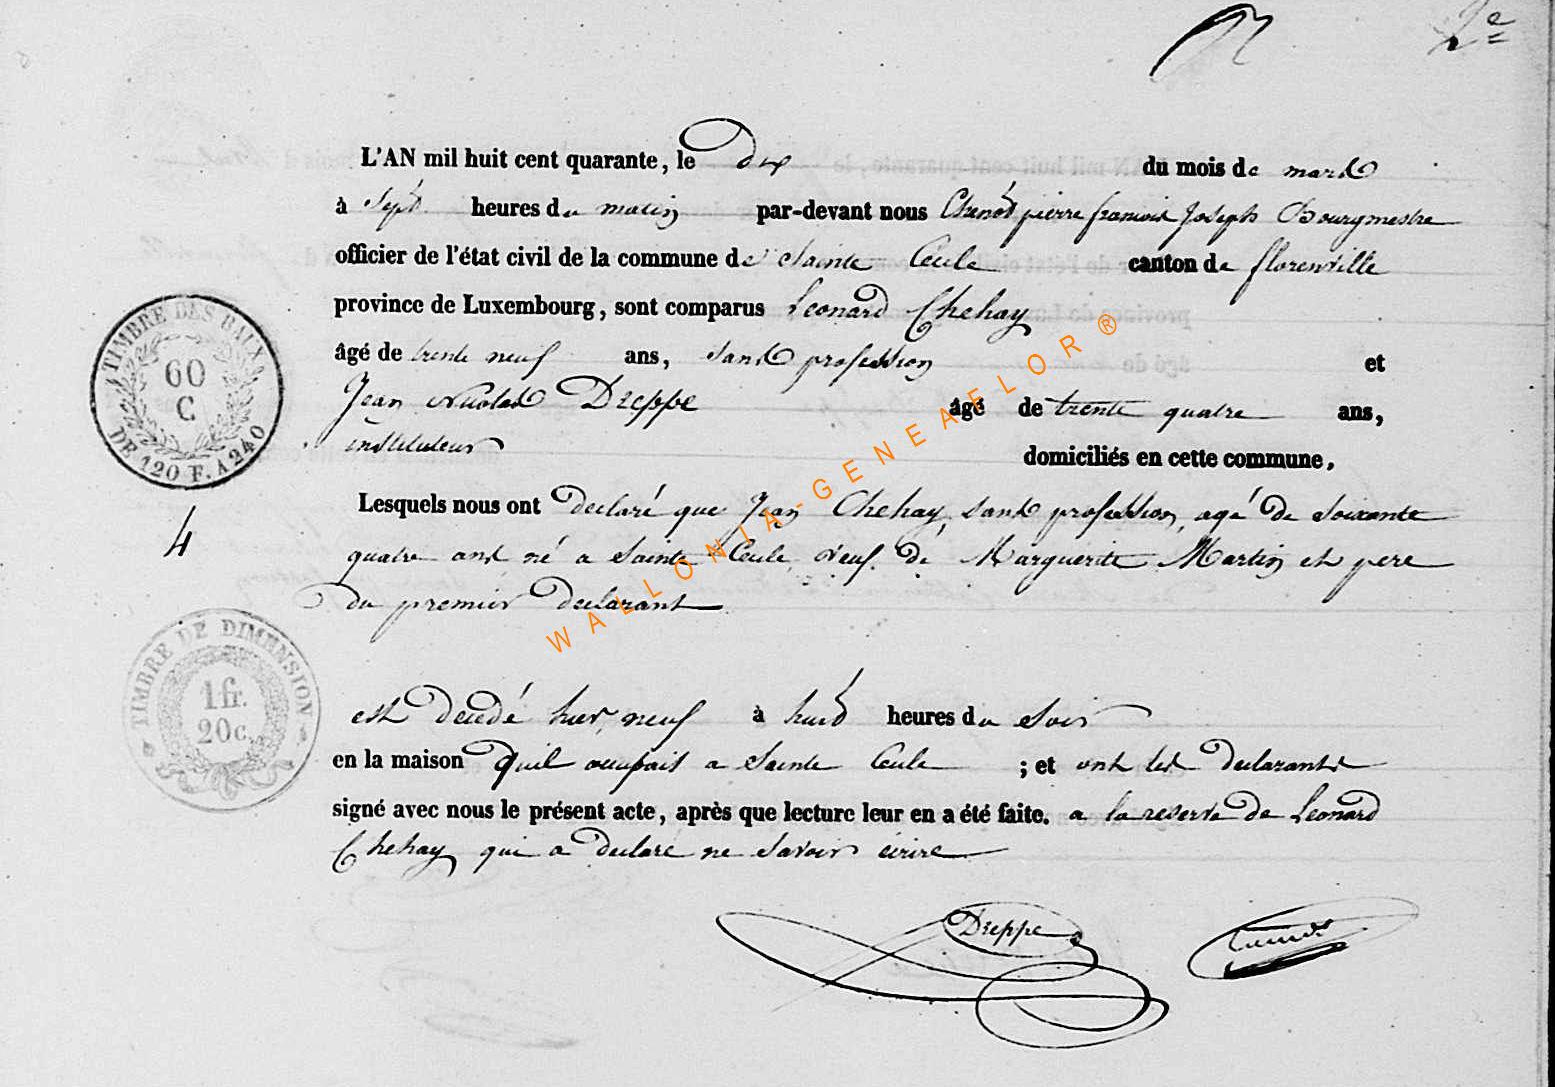 2e
L'AN mil huit cent quarante, le dix du mois de mars
à sept heures du matin par-devant nous Chenot pierre francois Joseph Bourgmestre
officier de l'état civil de la commune de Sainte Cecile canton de florenville
province de Luxembourg, sont comparus Leonard Chehay
âgé de trente neuf ans, sans profession et
Jean Nicolas Dreppe âgé de trente quatre ans,
instituteur domiciliés en cette commune,
Lesquels nous ont declaré que Jean Chehay sans profession, agé de soixante
quatre ans né a Sainte Cecile, veuf de Marguerite Martin et pere
du premier declarant
est decedé hier, neuf à huit heures du soir
en la maison quil occupait a Sainte Cecile ; et ont les declarants
signé avec nous le présent acte, après que lecture leur en a été faite. a la reserve de Leonard
Chehay qui a declare ne savoir écrire
Dreppe
TIMBRE DES BAUX
60
C
DE 120 F. A 240
4
TIMBRE DE DIMENSION
1 fr.
20 c.
WALLONIA-GENEAFLOR®